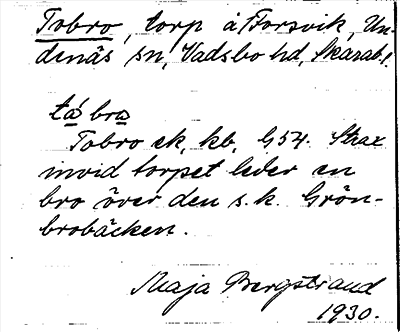 Tobro, torp å Forsvik, Un-
denäs sn, Vadsbo hd, Skarab.l.
tå bra
Tobro ek, kb, G54. Strax
invid torpet leder en
bro över den s.k. Grön-
brobäcken.
Maja Bergstrand
1930.